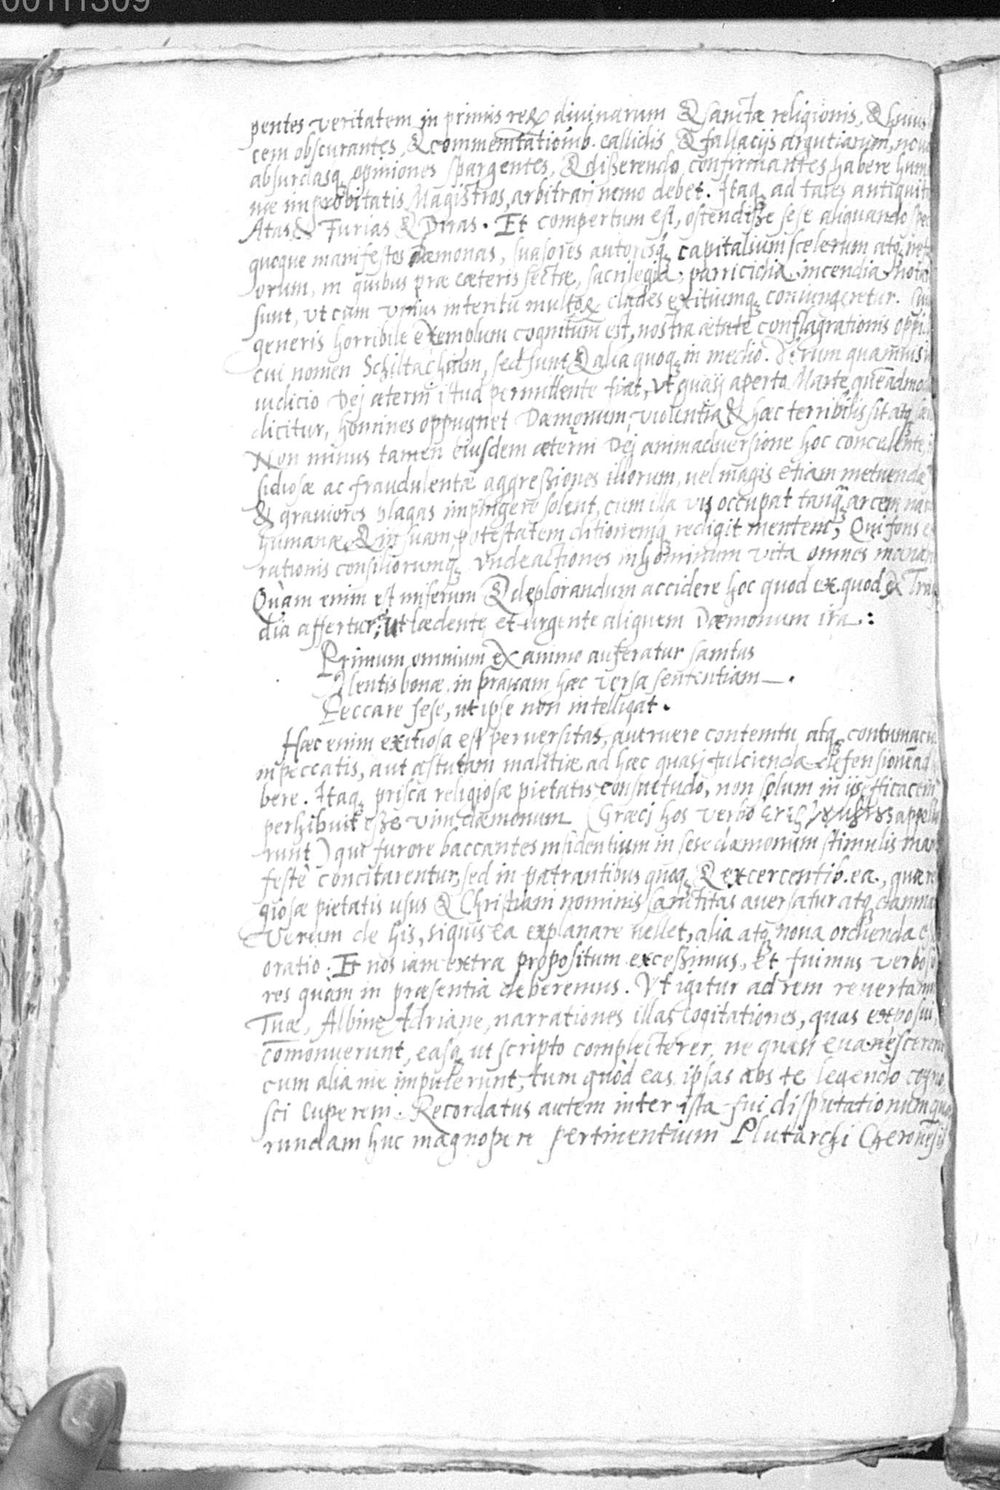 00111309
pentes veritatem in primis reꝝ divinarum & sanctæ religionis, & huius
cem obscurantes, & commentationib. callidis, & fallacijs argutiarum, nova
absurdasq opiniones spargentes, & disserendo confirmantes habere hum
næ improbitatis Magistros, arbitrari nemo debet. Itaq ad tales antiquit
Atas & Furias & Diras. Et compertum est, ostendisse sese aliquando
quoque manifestos dæmonas, suasores autoresq capitalium scelerum atq
orum, in quibus præ cæteris sectæ, sacrilegia, parricidia, incendia nota
sunt, ut cum unius interitu multoꝝ clades exitiumq coniungeretur.
generis horribile exemplum cognitum est, nostra ætate conflagrationis oppi
cui nomen Schiltachium, sed sunt & alia quoq in medio. Verum quamuis
iudicio Dej æterni istud permittente fiat, ut quasj aperto Marte, quemadmo
dicitur, homines oppugnet Dæmonum violentia & hæc terribilis sit atq
Non minus tamen eiusdem æterni Dej animadversione hoc concedente,
sidiosæ ac fraudulentæ aggressiones illorum, vel magis etiam metuendæ
& graviores plagas impingere solent, cum illa vis occupat tanq arcem nat
humanæ, & in suam potestatem ditionemq redigit mentem, Qui fons
rationis consiliorumq unde actiones in hominum vita omnes manan
Quàm enim est miserum & deplorandum accidere hoc quod ex quod ex Tra
dia affertur, ut lædente et urgente aliquem Dæmonum ira.:
Primum omnium ex animo auferatur sanitus
Mentis bonæ, in pravam hæc versa sententiam.
Peccare sese, ut ipse non intelligat.
Hæc enim exitiosa est perversitas, aut ruere contemtu atq contumacia
in peccatis, aut astutam malitiæ ad hæc quasj fulcienda defensionem ad
bere. Itaq prisca religiosæ pietatis consuetudo, non solum in iis efficacem
perhibuit esse vim dæmonum (Græcj hos verbo appella
runt) qui furore baccantes insidentium in sese dæmonum stimulis mani
feste concitarentur, sed in patrantibus quoq & excercentib. ea, quæ re
giosæ pietatis usus & Christiani nominis sanctitas aversatur atq damna
Verum de his, siquis ea explanare vellet, alia atq nova ordienda e
oratio. Et nos iam extra propositum excessimus, Et fuimus verbosi
res quàm in præsentia deberemus. Ut igitur ad rem revertamu
Tuæ, Albine Adriane, narrationes illas cogitationes, quas exposui,
comonuerunt, easq ut scripto complecterer, ne quasi evanescerent
cum alia me impulerunt, tum quòd eas ipsas abs te legendo cogno
sci cuperem. Recordatus autem inter ista fui disputationum quo
rundam huc magnopere pertinentium Plutarchi Cheronensis